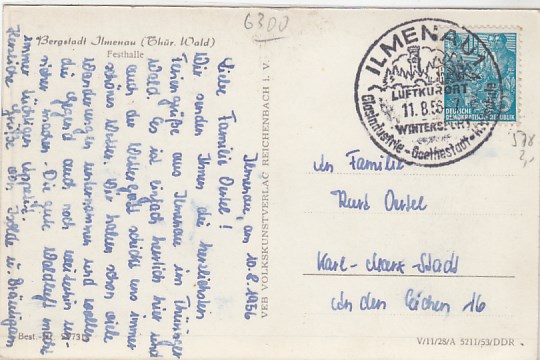 6300
Bergstadt Ilmenau (Thür. Wald)
Festhalle
Ilmenau, am 10.8.1956
Liebe Familie Oertel!
Wir senden Ihnen die herzlichsten
Feriengrüße aus Ilmenau im Thüringer
Wald. Es ist einfach herrlich hier und
auch der Wettergott schickt uns immer
schönes Wetter. Wir haben schon viele
Wanderungen unternommen und wollen
die Gegend auch noch weiterhin un-
sicher machen. Die gute Waldluft macht
immer tüchtigen Appetit.
Herzliche Grüße von Isolde u. Bräutigam
VEB VOLKSKUNSTVERLAG REICHENBACH I. V.
ILMENAU
LUFTKURORT
11.8.56
WINTERSPORT
Glasindustrie - Goethestadt
DEUTSCHE
DEMOKRATISCHE
578
An Familie
Kurt Oertel
Karl-Marx-Stadt
An den Eichen 16
Best.-Nr.
V/11/28/A 5211/53/DDR